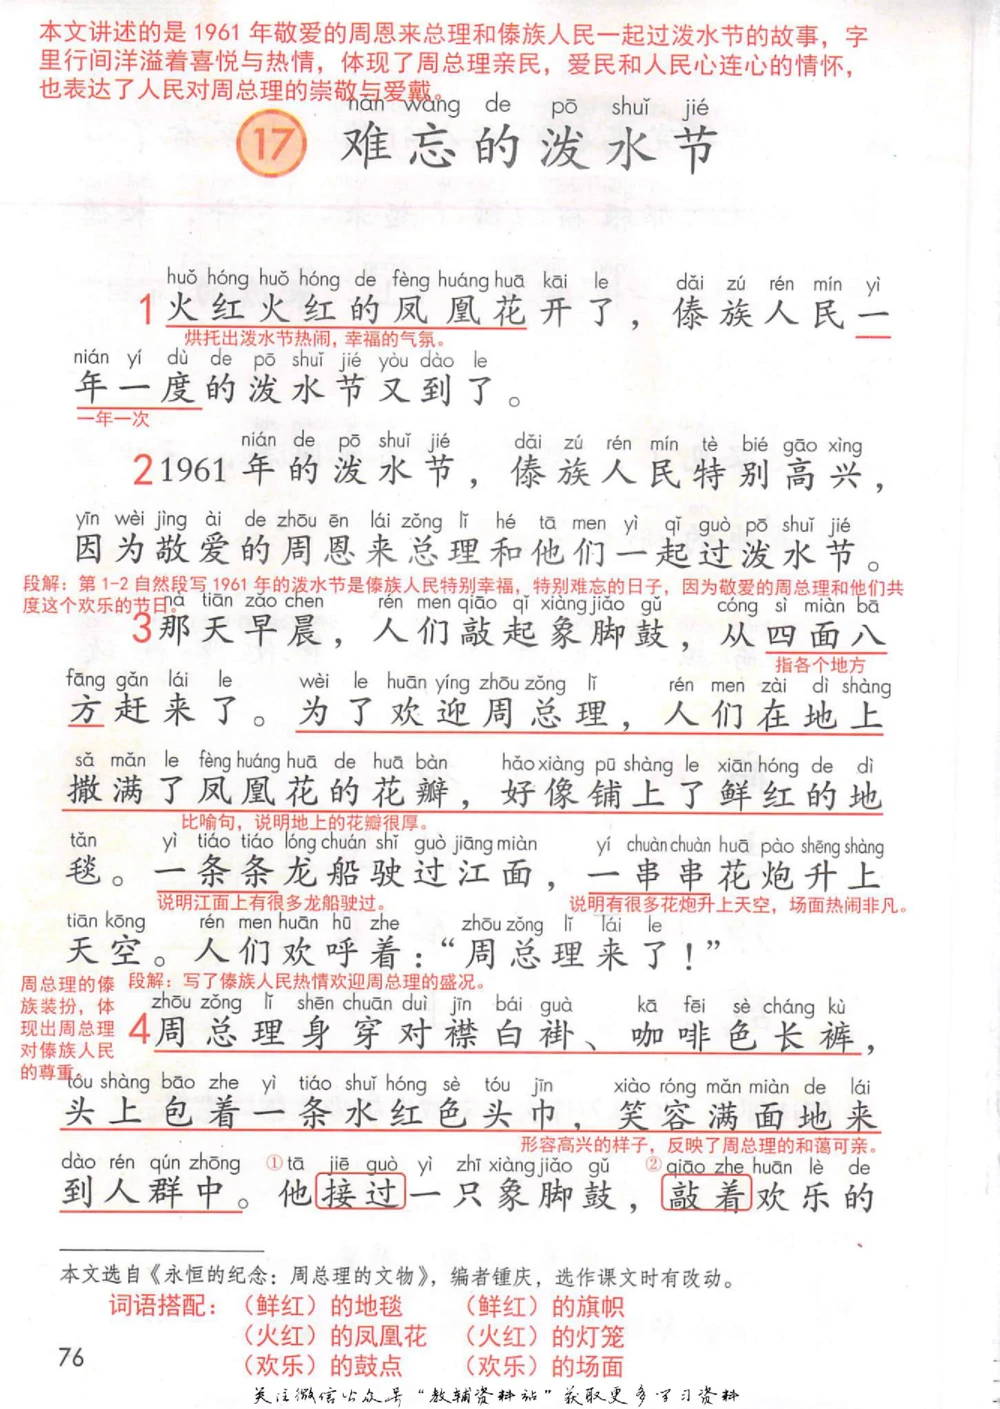 本文讲述的是 1961 年敬爱的周恩来总理和傣族人民一起过泼水节的故事，字
里行间洋溢着喜悦与热情，体现了周总理亲民，爱民和人民心连心的情怀，
也表达了人民对周总理的崇敬与爱戴。
nán wàng de pō shuǐ jié
17 难忘的泼水节
huǒ hóng huǒ hóng de fèng huáng huā kāi le dǎi zú rén mín yì
1 火红火红的凤凰花开了，傣族人民一
烘托出泼水节热闹，幸福的气氛。
nián yí dù de pō shuǐ jié yòu dào le
年一度的泼水节又到了。
一年一次
nián de pō shuǐ jié dǎi zú rén mín tè bié gāo xìng
2 1961 年的泼水节，傣族人民特别高兴，
yīn wèi jìng ài de zhōu ēn lái zǒng lǐ hé tā men yì qǐ guò pō shuǐ jié
因为敬爱的周恩来总理和他们一起过泼水节。
段解：第 1-2 自然段写 1961 年的泼水节是傣族人民特别幸福，特别难忘的日子，因为敬爱的周总理和他们共
度这个欢乐的节日。
nà tiān zǎo chen rén men qiāo qǐ xiàng jiǎo gǔ cóng sì miàn bā
3 那天早晨，人们敲起象脚鼓，从四面八
指各个地方
fāng gǎn lái le wèi le huān yíng zhōu zǒng lǐ rén men zài dì shàng
方赶来了。为了欢迎周总理，人们在地上
sǎ mǎn le fèng huáng huā de huā bàn hǎo xiàng pū shàng le xiān hóng de dì
撒满了凤凰花的花瓣，好像铺上了鲜红的地
比喻句，说明地上的花瓣很厚。
tǎn yì tiáo tiáo lóng chuán shǐ guò jiāng miàn yí chuàn chuàn huā pào shēng shàng
毯。一条条龙船驶过江面，一串串花炮升上
说明江面上有很多龙船驶过。 说明有很多花炮升上天空，场面热闹非凡。
tiān kōng rén men huān hū zhe zhōu zǒng lǐ lái le
天空。人们欢呼着：“周总理来了！”
段解：写了傣族人民热情欢迎周总理的盛况。
周总理的傣
族装扮，体
现出周总理
对傣族人民
的尊重。
zhōu zǒng lǐ shēn chuān duì jīn bái guà kā fēi sè cháng kù
4 周总理身穿对襟白褂、咖啡色长裤，
tóu shàng bāo zhe yì tiáo shuǐ hóng sè tóu jīn xiào róng mǎn miàn de lái
头上包着一条水红色头巾，笑容满面地来
形容高兴的样子，反映了周总理的和蔼可亲。
dào rén qún zhōng ①tā jiē guò yì zhī xiàng jiǎo gǔ ②qiāo zhe huān lè de
到人群中。他接过一只象脚鼓，敲着欢乐的
本文选自《永恒的纪念：周总理的文物》，编者锺庆，选作课文时有改动。
词语搭配：（鲜红）的地毯 （鲜红）的旗帜
（火红）的凤凰花 （火红）的灯笼
（欢乐）的鼓点 （欢乐）的场面
76
关注微信公众号“教辅资料站”获取更多学习资料